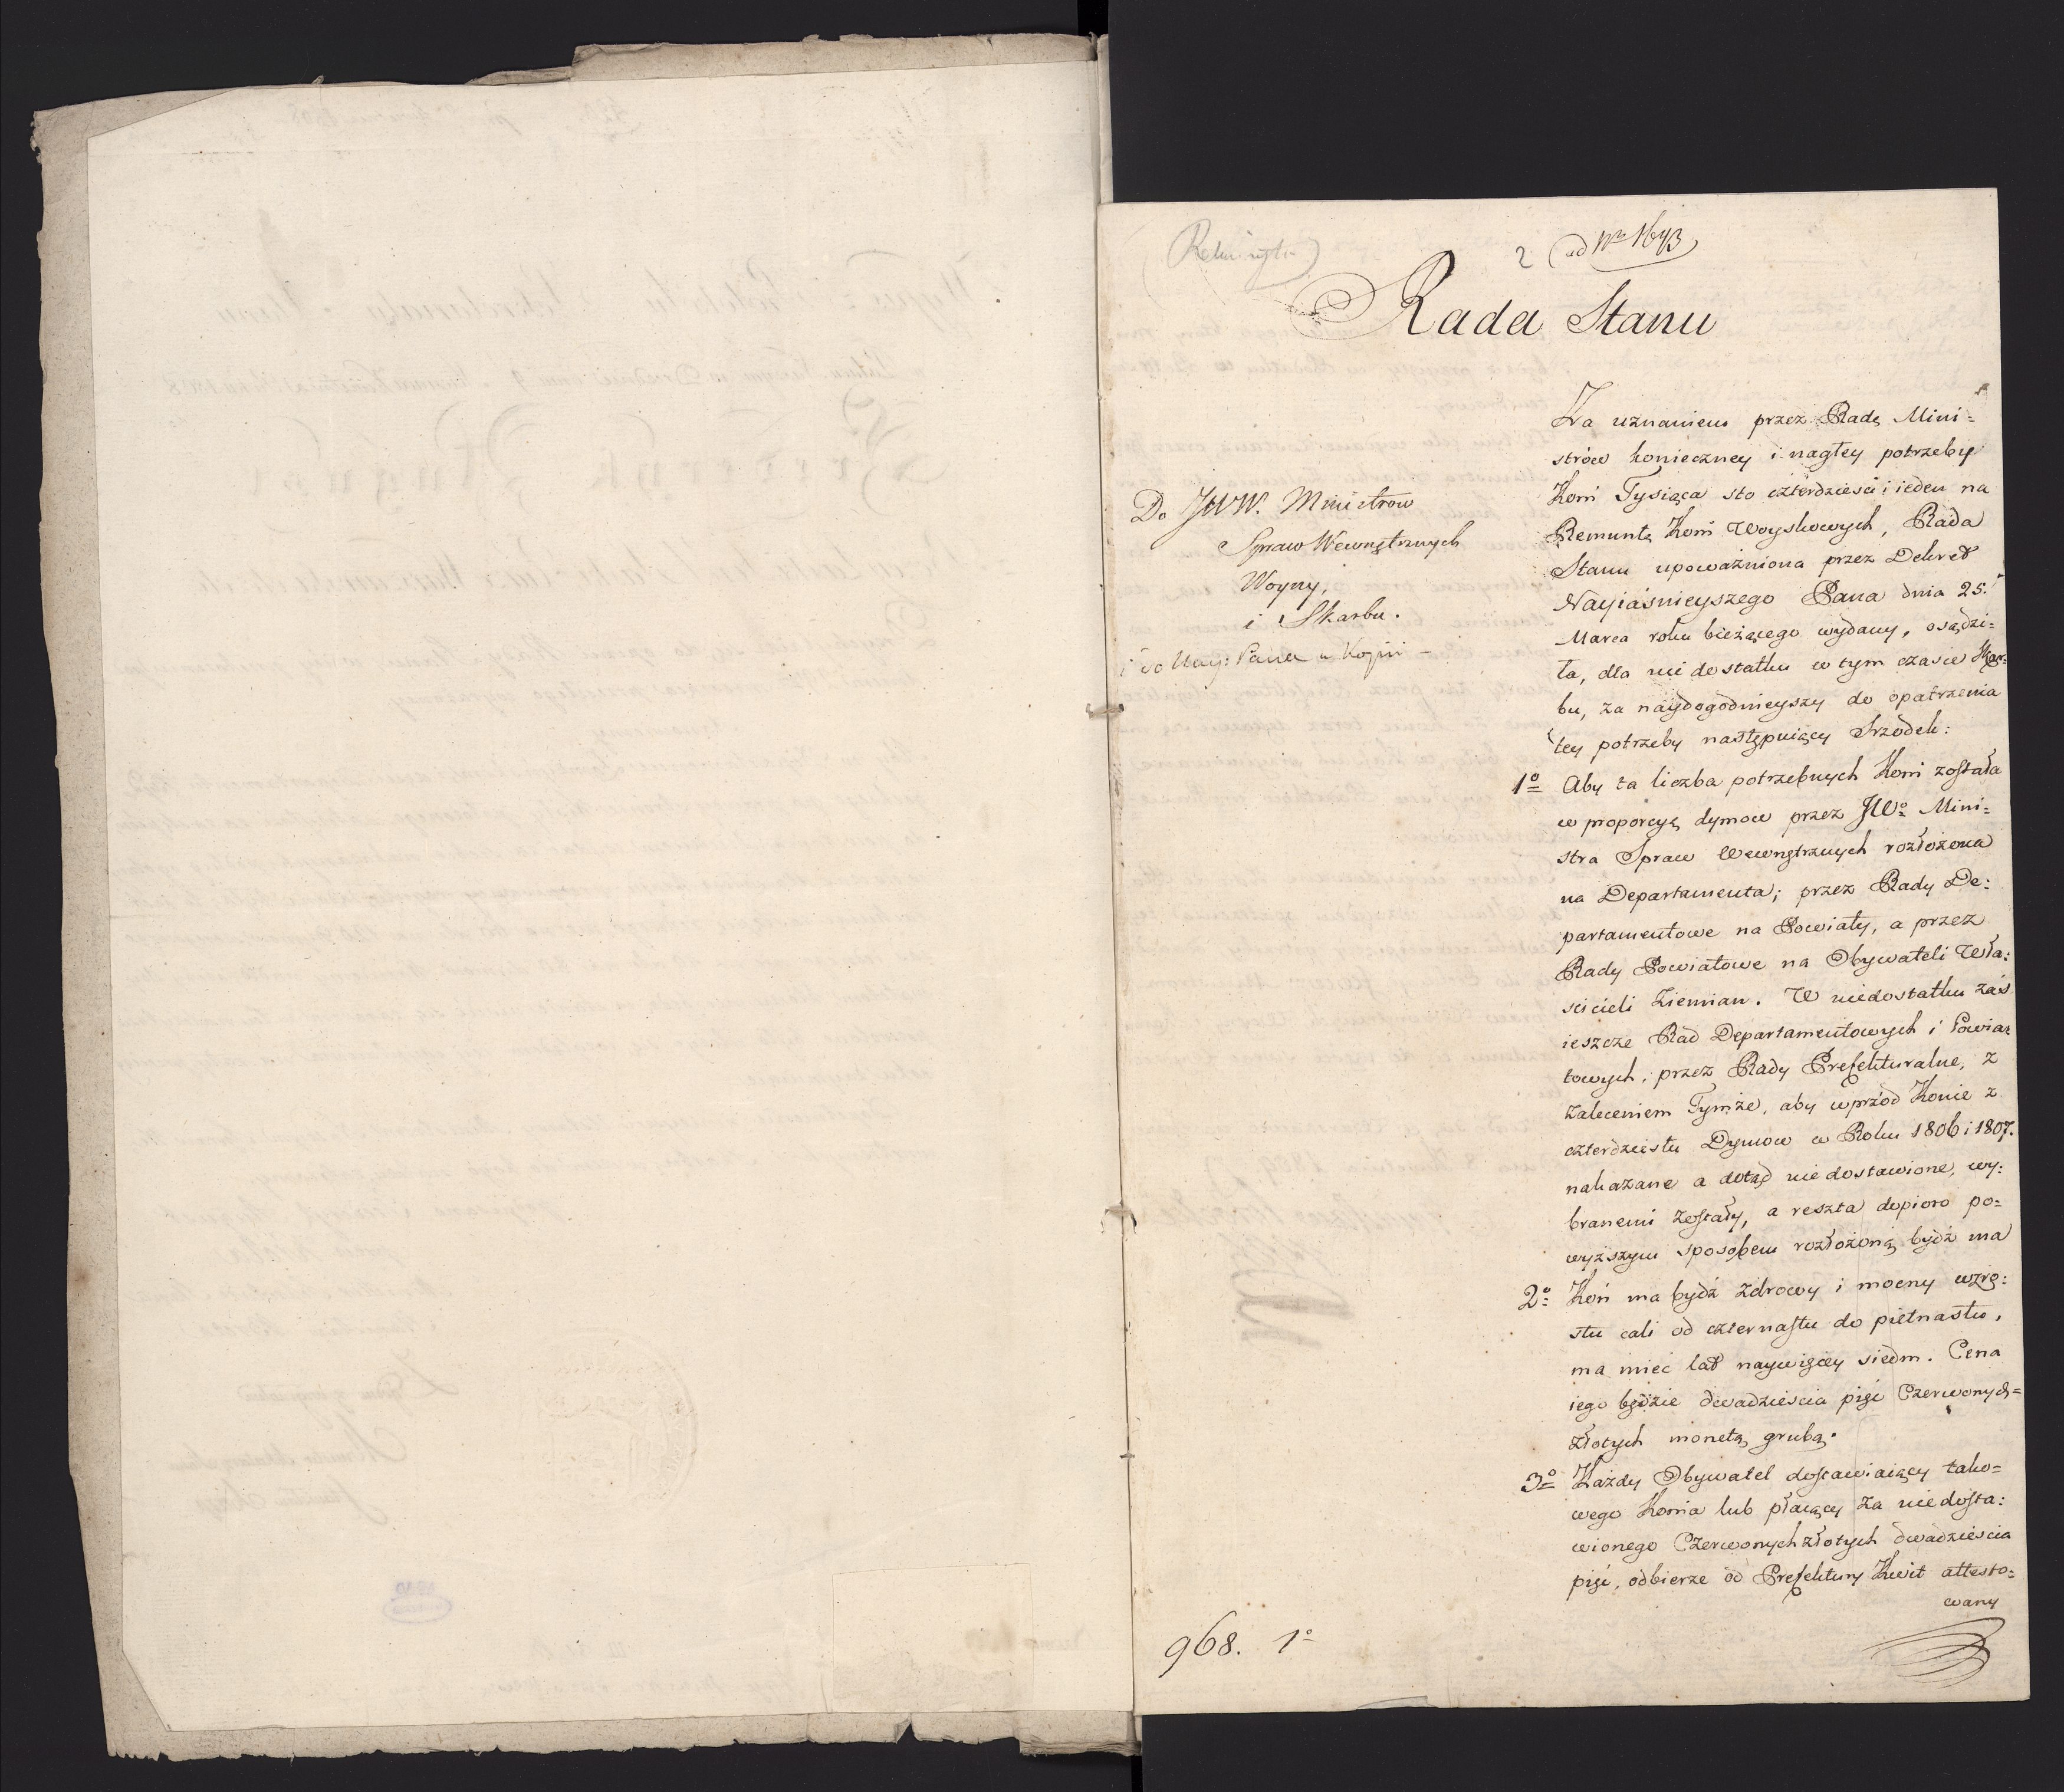 2 (ad Nro 1673)
Rada Stanu
Do JWW. Ministrow
Spraw Wewnętrznych
Woyny,
i Skarbu.
i do Nay: Pana w Kopii –
Za uznaniem przez Radę Mini=
strów konieczney i nagłey potrzeby
Koni Tysiąca sto czterdzieści i ieden na
Remuntę Koni Woyskowych, Rada
Stanu upoważniona przez Dekret
Nayiaśnieyszego Pana dnia 25.
Marca roku bieżącego wydany, osądzi=
ła, dla niedostatku w tym czasie Skar=
bu, za naydogodnieyszy do opatrzenia
tey potrzeby następuiący Srzodek:
1o Aby ta liczba potrzebnych Koni została
w proporcyą dymow przez JWo Mini=
stra Spraw Wewnętrznych rozłożona
na Departamenta; przez Rady De=
partamentowe na Powiaty, a przez
Rady Powiatowe na Obywateli Wła=
ścicieli Ziemian. W niedostatku zaś
ieszcze Rad Departamentowych i Powia=
towych, przez Rady Prefekturalne, z
zaleceniem Tymże, aby wprzód Konie z
czterdziestu Dymow w Roku 1806 i 1807.
nakazane a dotąd niedostawione, wy=
branemi zostały, a reszta dopioro po=
wyższym sposobem rozłożoną bydź ma
2o Koń ma bydź zdrowy i mocny wzro=
stu cali od czternastu do piętnastu,
ma mieć lat naywięcey siedm. Cena
iego będzie dwadzieścia pięć Czerwonych=
złotych monetą grubą.
3o Każdy Obywatel dostawiaiący tako=
wego Konia lub płacący za niedosta=
wionego Czerwonych złotych dwadzieścia
pięć, odbierze od Prefektury Kwit attesto=
wany
968. 1o